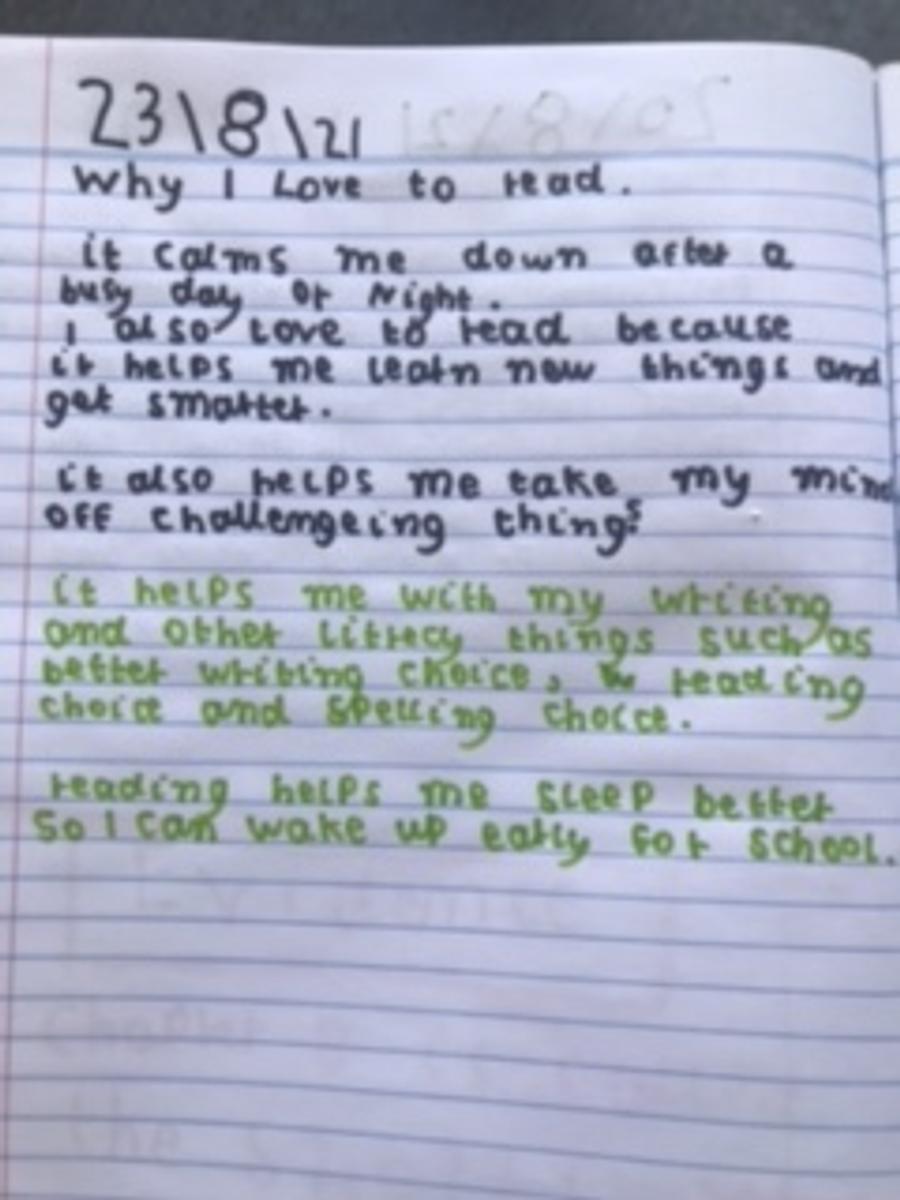 23\8\21
Why I Love to read.
it calms me down after a
busy day or Night.
I also love to read because
it helps me learn new things and
get smarter.
it also helps me take my mind
off challengeing things
it helps me with my writing
and other litrecy things such as
better writing choice, reading
choice and spelling choice.
reading helps me sleep better
So I can wake up early for school.